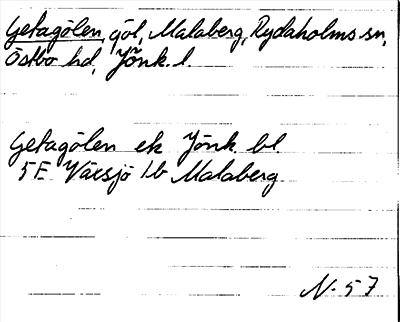 Getagölen, göl, Malaberg, Rydaholms sn,
Östbo hd, Jönk. l.
Getagölen ek Jönk. bl
5E Värsjö lb Malaberg
N-57